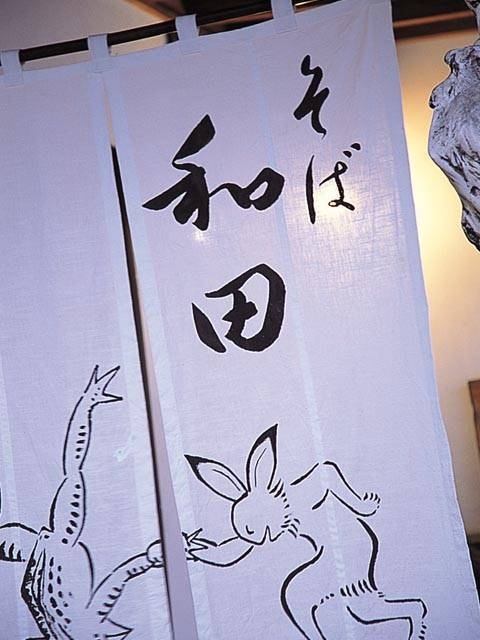 そば
和田